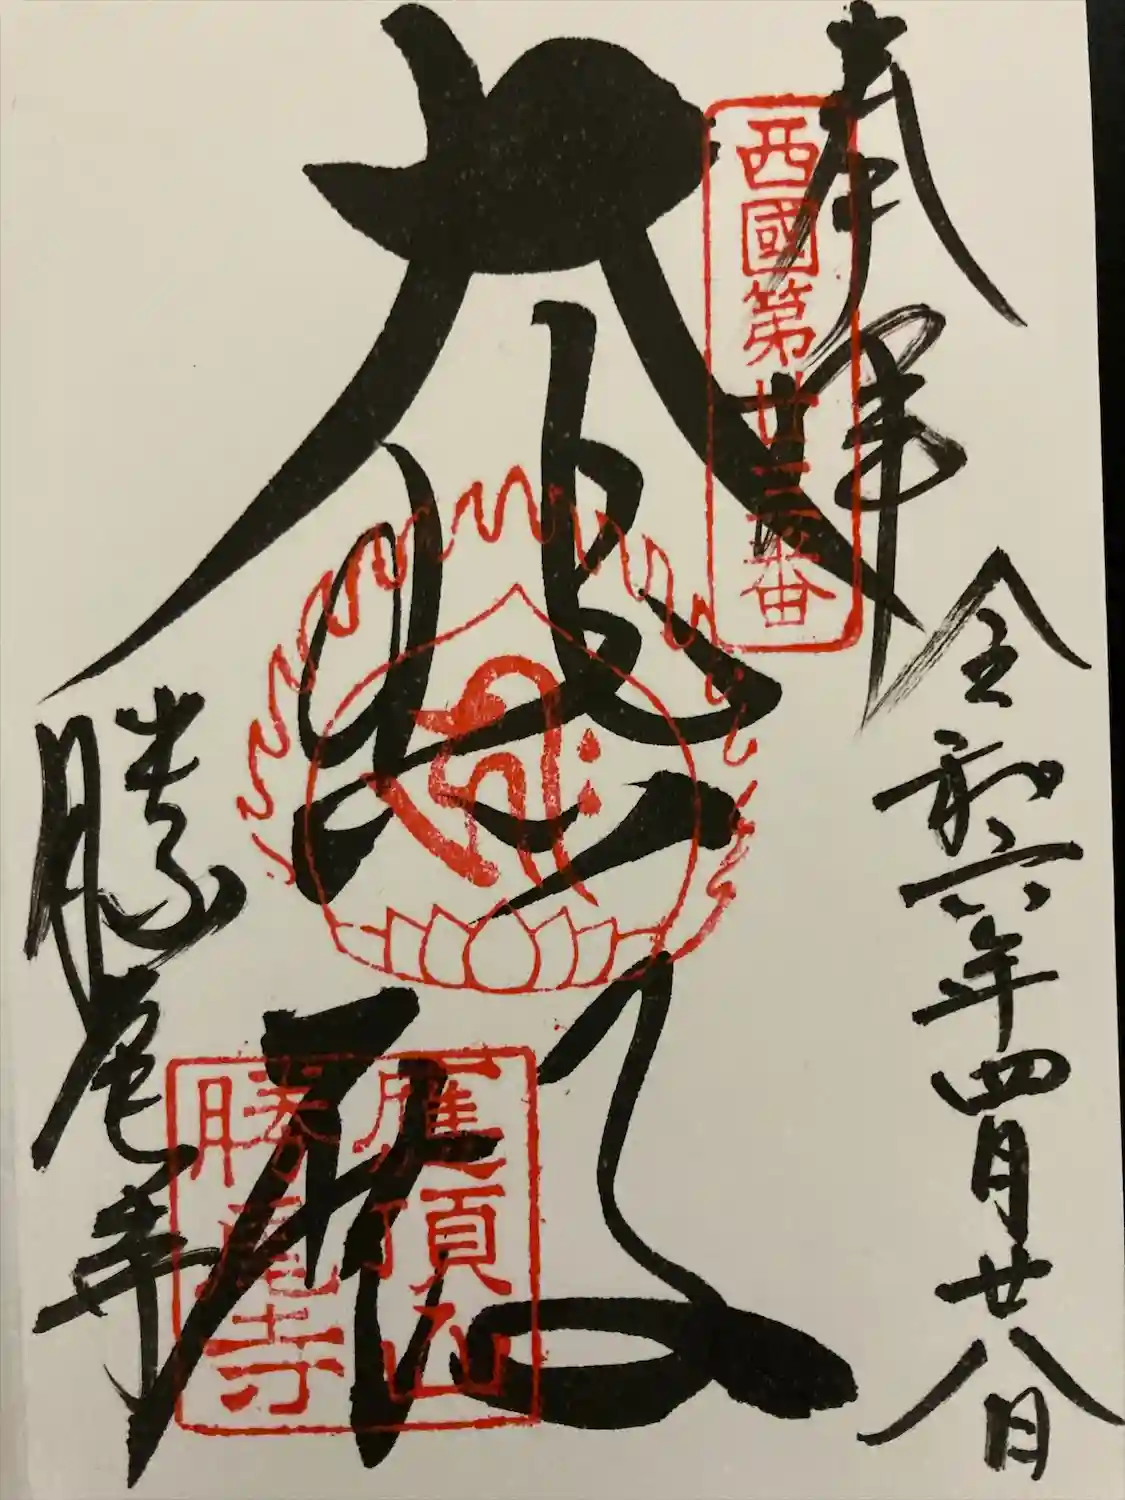 奉拝
令和六年四月廿八日
西國第廿三番
大悲殿
應頂山
勝尾寺
勝尾寺